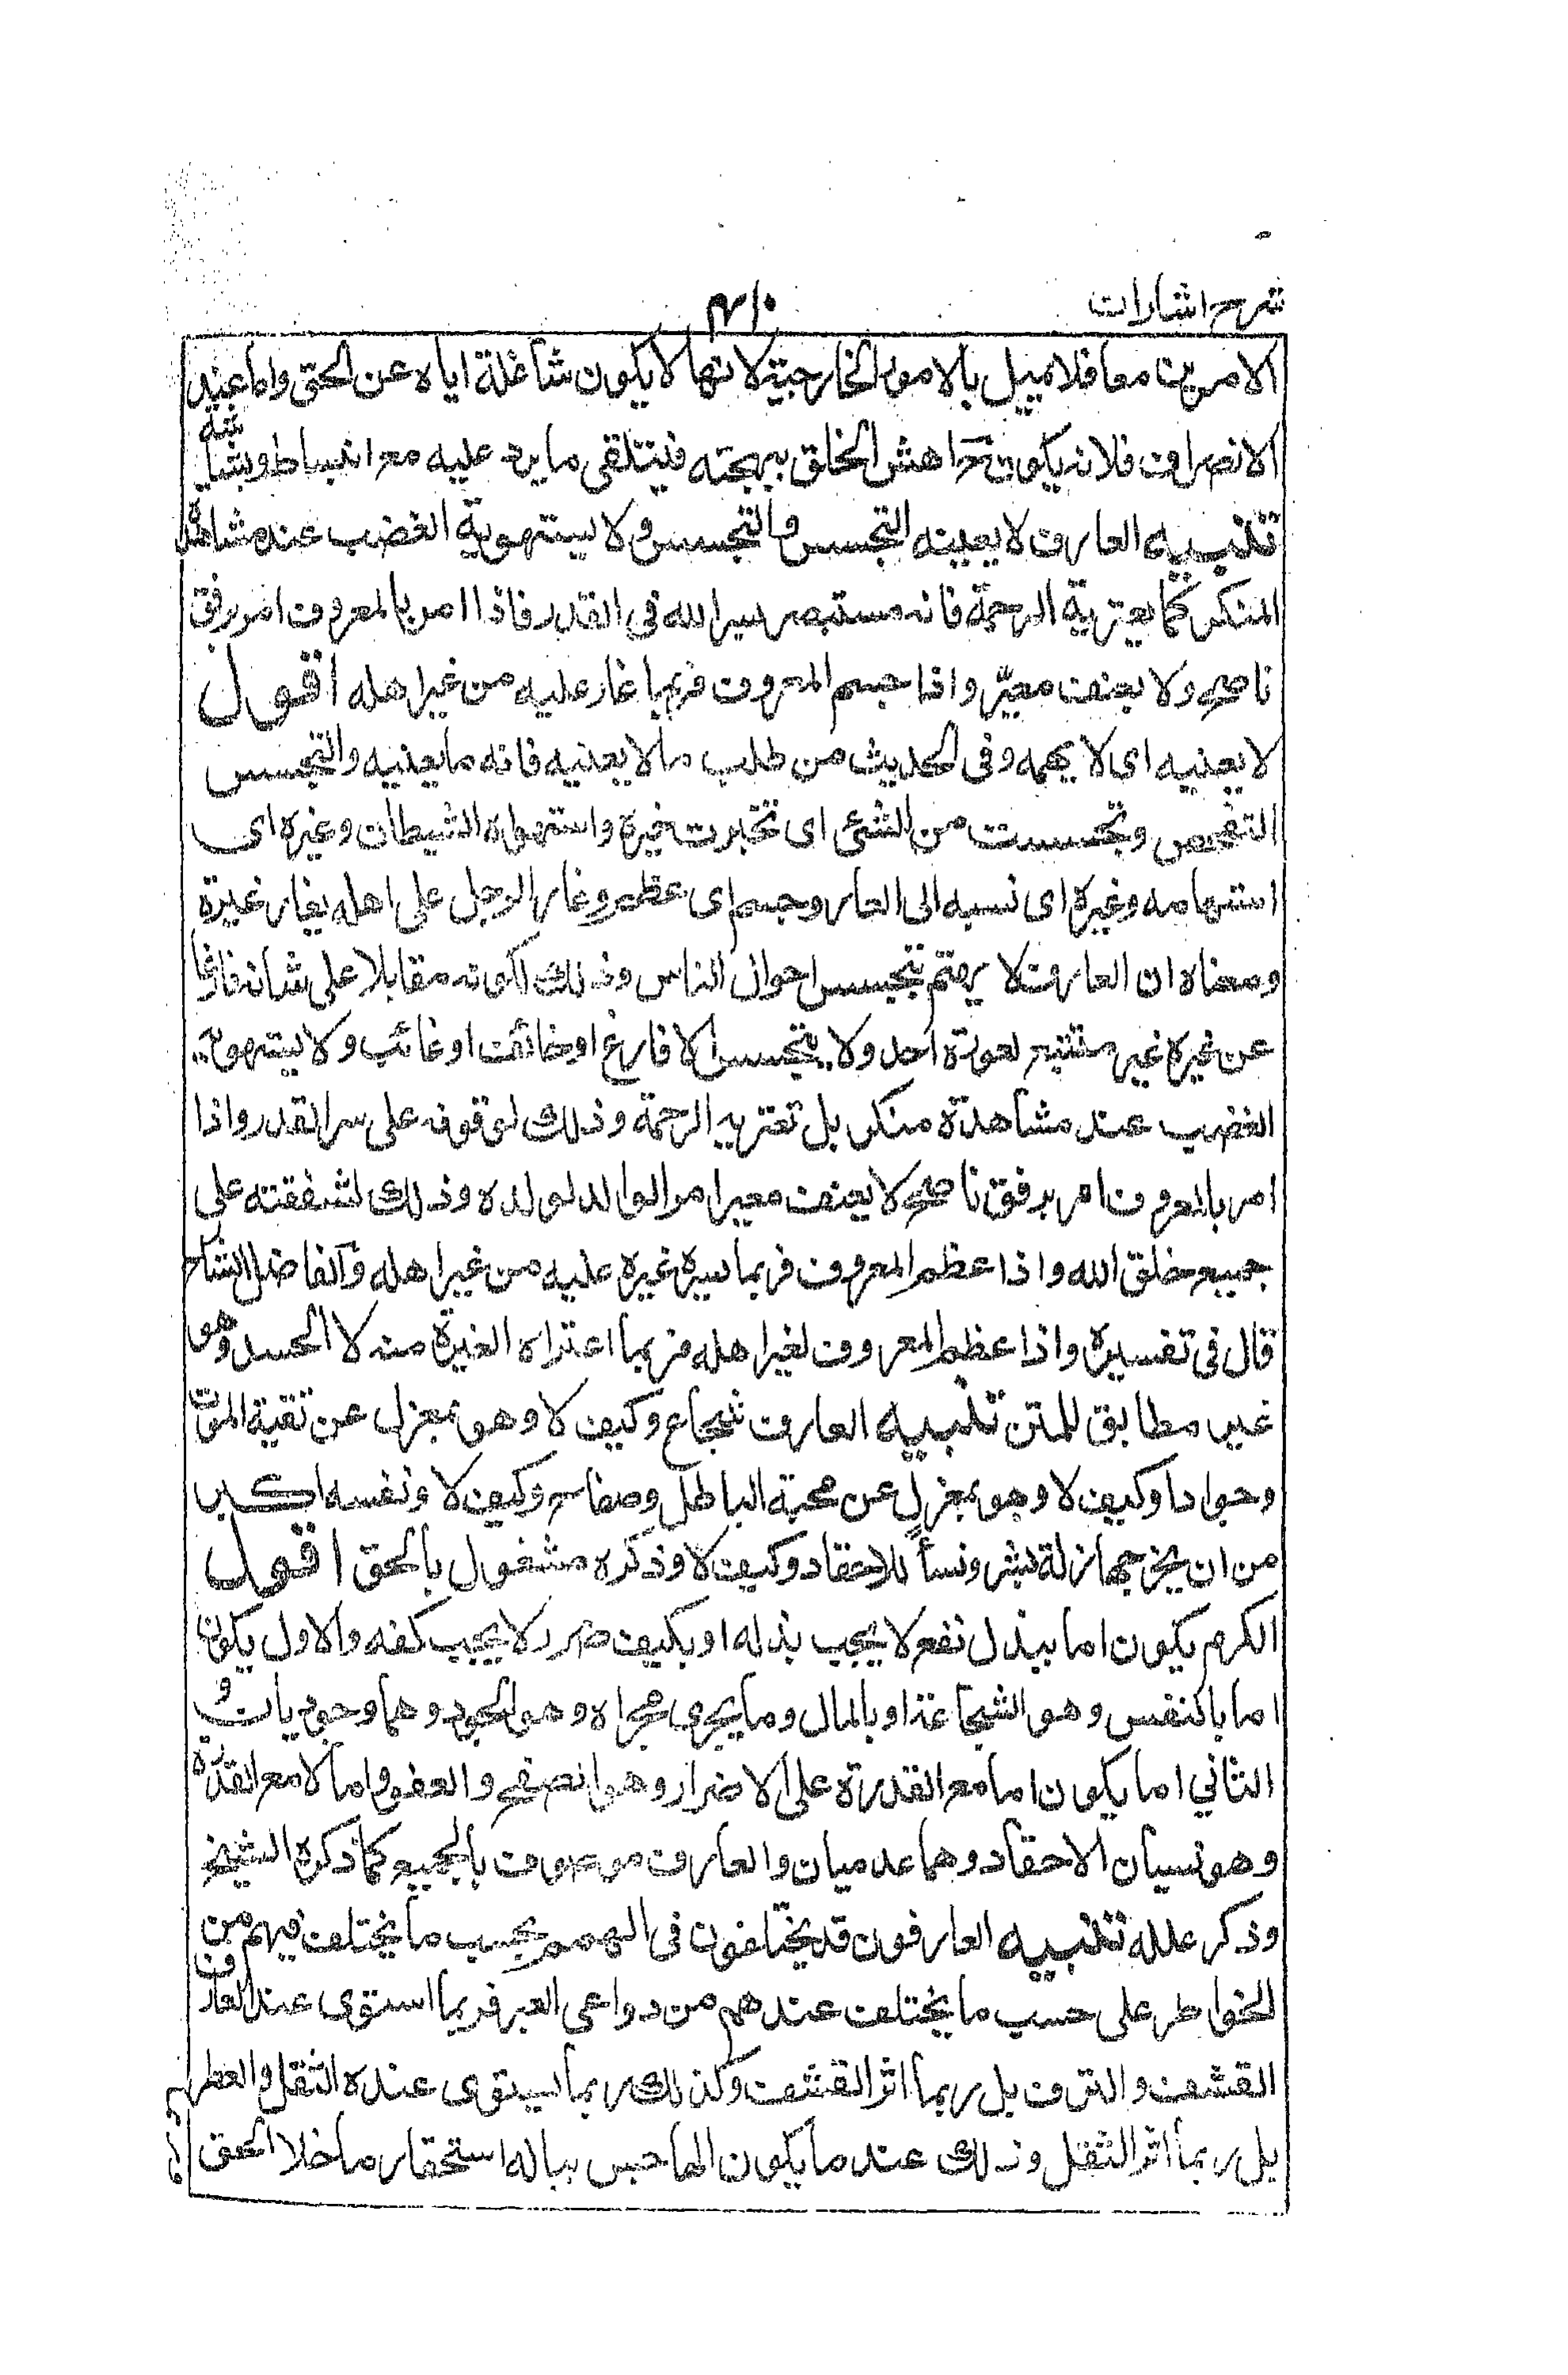 شرح اشارات
الامرين معا فلا ميل بالامور الخارجية لانها لا يكون شاغلة اياه عن الحق واما عند
الانصراف فلانه يكون ح اهش الخلق ببهجته فيتلقى ما يرد عليه مع انبساط وبشاشة
تنبيه العارف لا يعينه التجسس والتحسس ولا يستهويه الغضب عند مشاهدة
المنكر كما يعتريه الرحمة فانه مستبصر بسر الله فى القدر فاذا امر بالمعروف امر برفق
ناصح ولا بعنف معيّر واذا جسم المعروف فربما غار عليه من غير اهله اقول
لا يعنيه اى لا يهمه وفى الحديث من طلب ما لا يعنيه فاته ما يعنيه والتجسس
التفحص وتحسست من الشئ اى تخبرت خبره واستهواه الشيطان وغيره اى
استهامه وعيره اى نسبه الى العار وجسم اى عظم وغار الرجل على اهله يغار غيرة
ومعناه ان العارف لا يهتم بتجسس احوال الناس وذلك لكونه مقابلا على شانه فارغا
عن غيره غير متتبع لعورة احد ولا يتجسس الا فارغ او خائف او غائب ولا يستهويه
الغضب عند مشاهدة منكر بل تعتريه الرحمة وذلك لوقوفه على سر القدر واذا
امر بالمعروف امر برفق ناصح لا بعنف معير امر الوالد لولده وذلك لشفقته على
جميع خلق الله واذا عظم المعروف فربما سيره غيره عليه من غير اهله والفاضل الشارح
قال فى تفسيره واذا عظم المعروف لغير اهله فربما اعتراه الغيرة منه لا الحسد وهو
غير مطابق للمتن تنبيه العارف شجاع وكيف لا وهو بمعزل عن تقية الموت
وجوادا وكيف لا وهو بمعزل عن محبة الباطل وصفاح وكيف لا ونفسه اكبر
من ان يخرجها زلة بشر ونساء للاحقاد وكيف لا وذكره مشغول بالحق اقول
الكرم يكون اما ببذل نفع لا يجب بذله او بكيف ضرر لا يجب كفه والاول يكون
اما بالنفس وهو الشجاعة او بالمال وما يجرى مجراه وهو الجود وهما وجوديات و
الثاني اما يكون اما مع القدرة على الاضرار وهو الصفح والعفو واما لا مع القدرة
وهو نسيان الاحقاد وهما عدميان والعارف موصوف بالجميع كما ذكره الشيخ
وذكر علله تنبيه العارفون قد يختلفون فى الهمم بحسب ما يختلف فيهم من
الخواطر على حسب ما يختلف عندهم من دواعى العبر فربما استوى عند العارف
القشف والترف بل ربما اثر القشف وكذلك ربما يستوى عنده الثقل والعطر
بل ربما اثر الثقل وذلك عند ما يكون الهاجس بباله استحقار ما خلا الحق